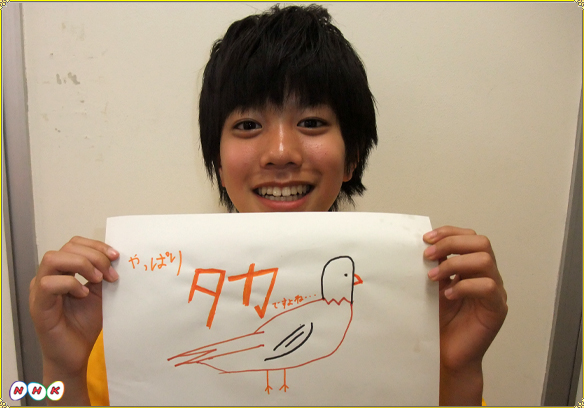 やっぱり
タカ
ですよね...
NHK